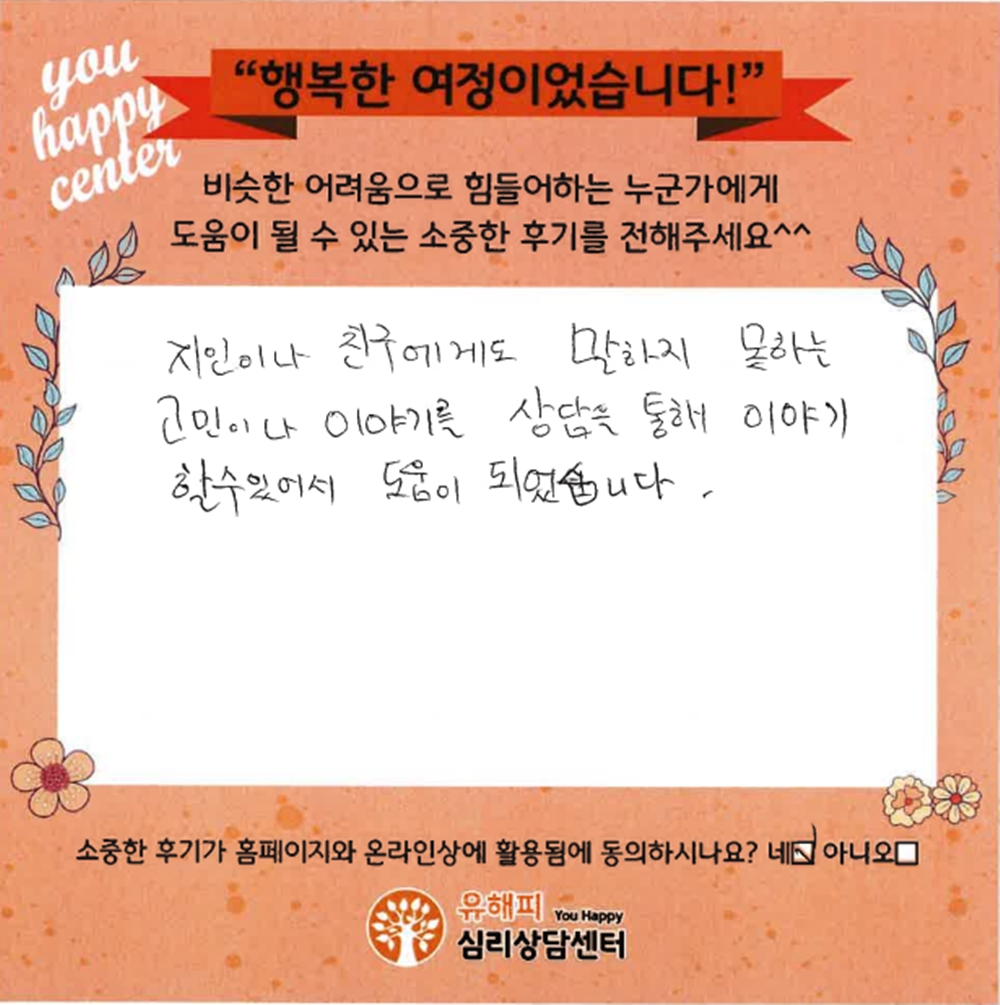 you
happy
center
“행복한 여정이었습니다!”
비슷한 어려움으로 힘들어하는 누군가에게
도움이 될 수 있는 소중한 후기를 전해주세요^^
지인이나 친구에게도 말하지 못하는
고민이나 이야기를 상담을 통해 이야기
할수있어서 도움이 되었습니다.
소중한 후기가 홈페이지와 온라인상에 활용됨에 동의하시나요? 네☑ 아니오☐
유해피 You Happy
심리상담센터